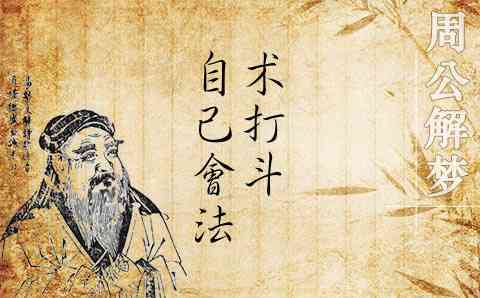 周公解梦
自己會法
术打斗